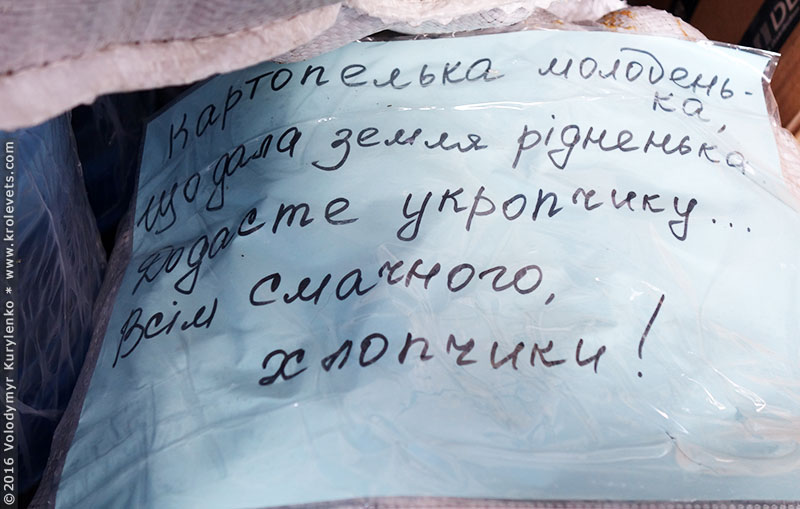 Картопелька молодень-
ка,
що дала земля рідненька
Додасте укропчику...
Всім смачного,
хлопчики!
©2016 Volodymyr Kurylenko * www.krolevets.com